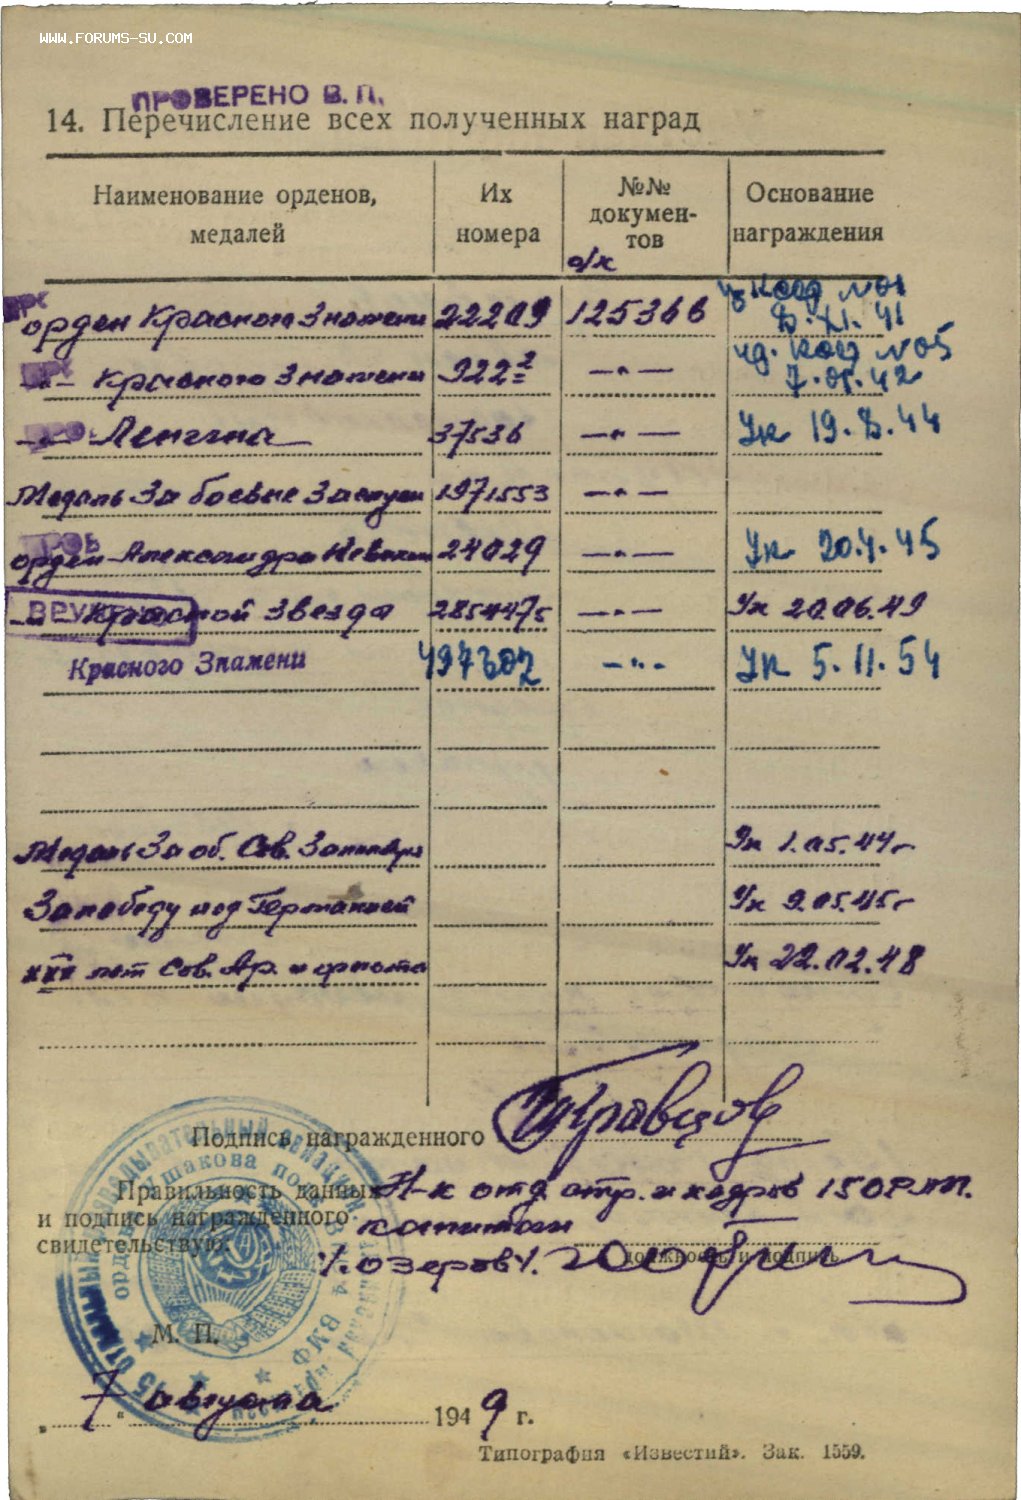 WWW.FORUMS-SU.COM
ПРОВЕРЕНО В. П.
14. Перечисление всех полученных наград
Наименование орденов, медалей
Их номера
№№ докумен-тов
Основание награждения
о/к
орден Красного Знамени 22209 125366 КСФ № 01
XI. 41
-"- Красного Знамени 922 -"- КСФ № 05
7.05.42
-"- Ленина 37536 -"- Ук 19.8.44
Медаль За боевые Заслуги 1971553 -"-
ПРОВ
орден Александра Невского 24029 -"- Ук 20.4.45
ВРУЧЕНО
Красной Звезда 2854475 -"- Ук 20.06.49
Красного Знамени 497302 -"- Ук 5.11.54
Медаль За об. Сов. Заполярья Ук 1.05.44г
За победу над Германией Ук 9.05.45г
XXX лет Сов. Ар. и флота Ук 22.02.48
Подпись награжденного
Правильность данных
и подпись награжденного
свидетельствую:
Н-к отд. стр. и кадров 15 ОРАП.
капитан
/Озеров/.
должность и подпись
М. П.
" 7 " августа 1949 г.
Типография «Известий». Зак. 1559.